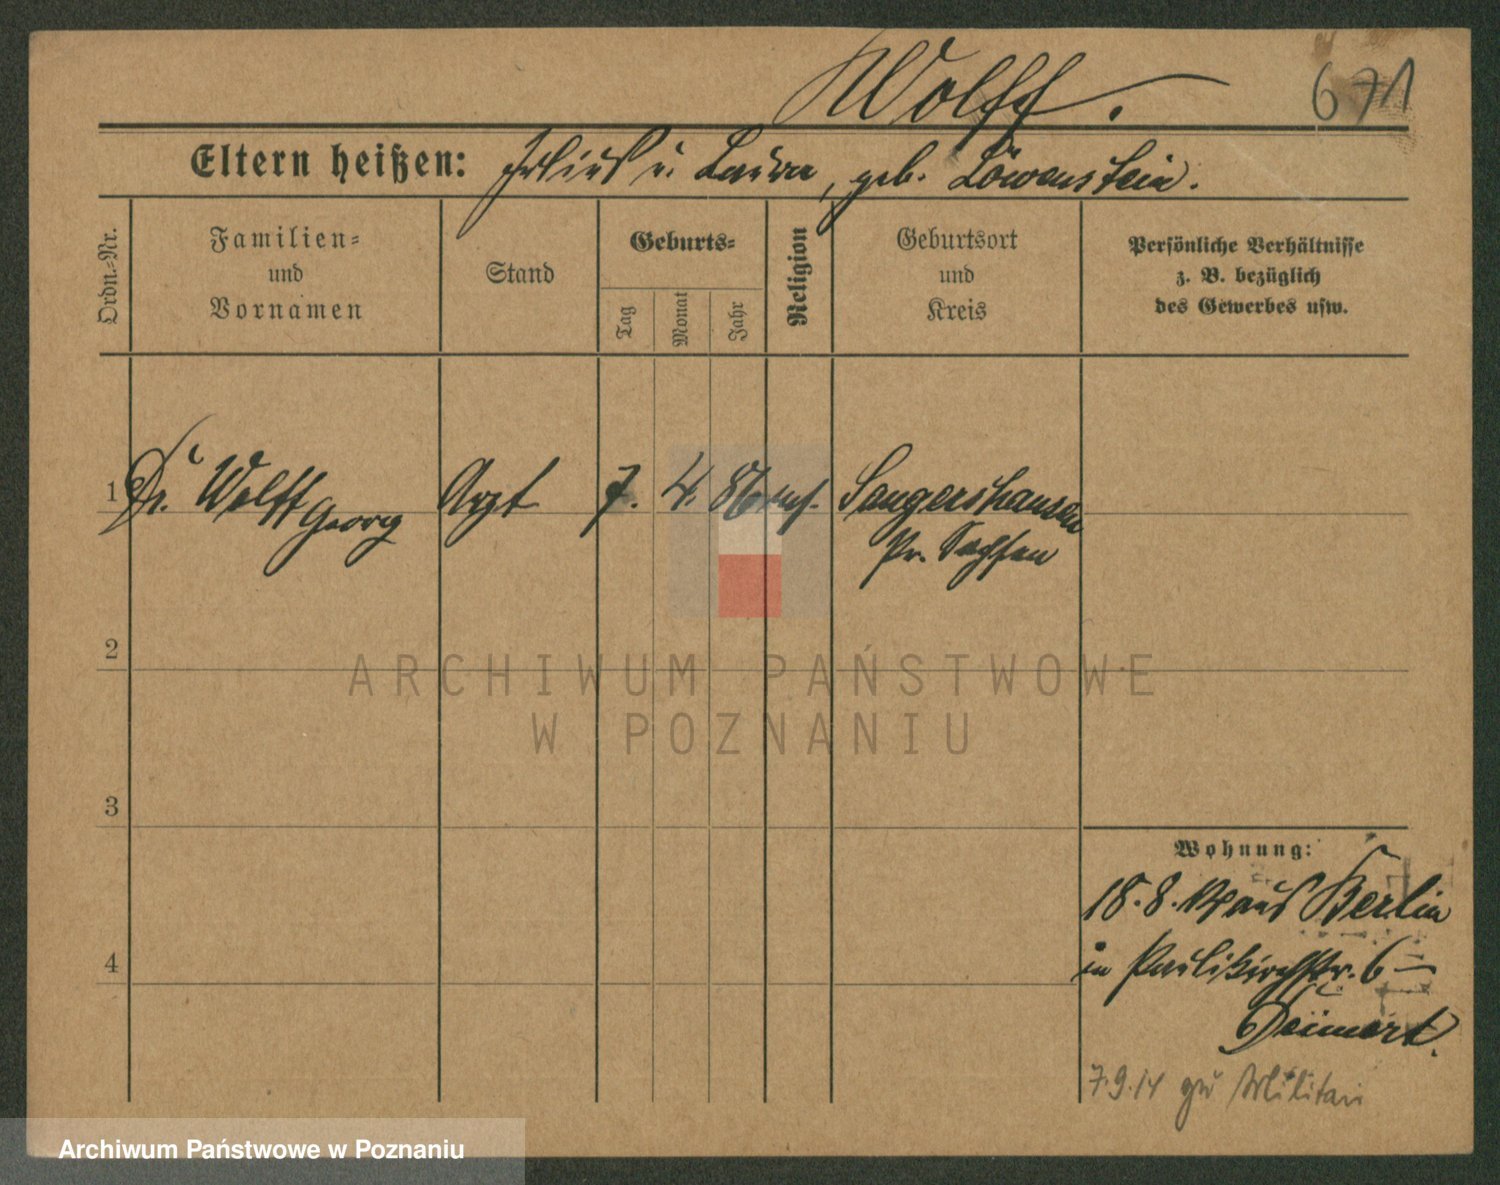 Wolff.
671
Eltern heißen: Julius u. Laura, geb. Löwenstein.
Ordn.-Nr.
Familien- und Vornamen
Stand
Geburts-
Tag
Monat
Jahr
Religion
Geburtsort und Kreis
Persönliche Verhältnisse z. B. bezüglich des Gewerbes usw.
1 Dr. Wolff Georg Arzt 7. 4. 86 mos. Sangershausen
Pr. Sachsen
2
ARCHIWUM PAŃSTWOWE
W POZNANIU
3
Wohnung:
18.8.14 aus Berlin
4
in Paulikirchstr. 6 –
7.9.14 zu Militär
Archiwum Państwowe w Poznaniu